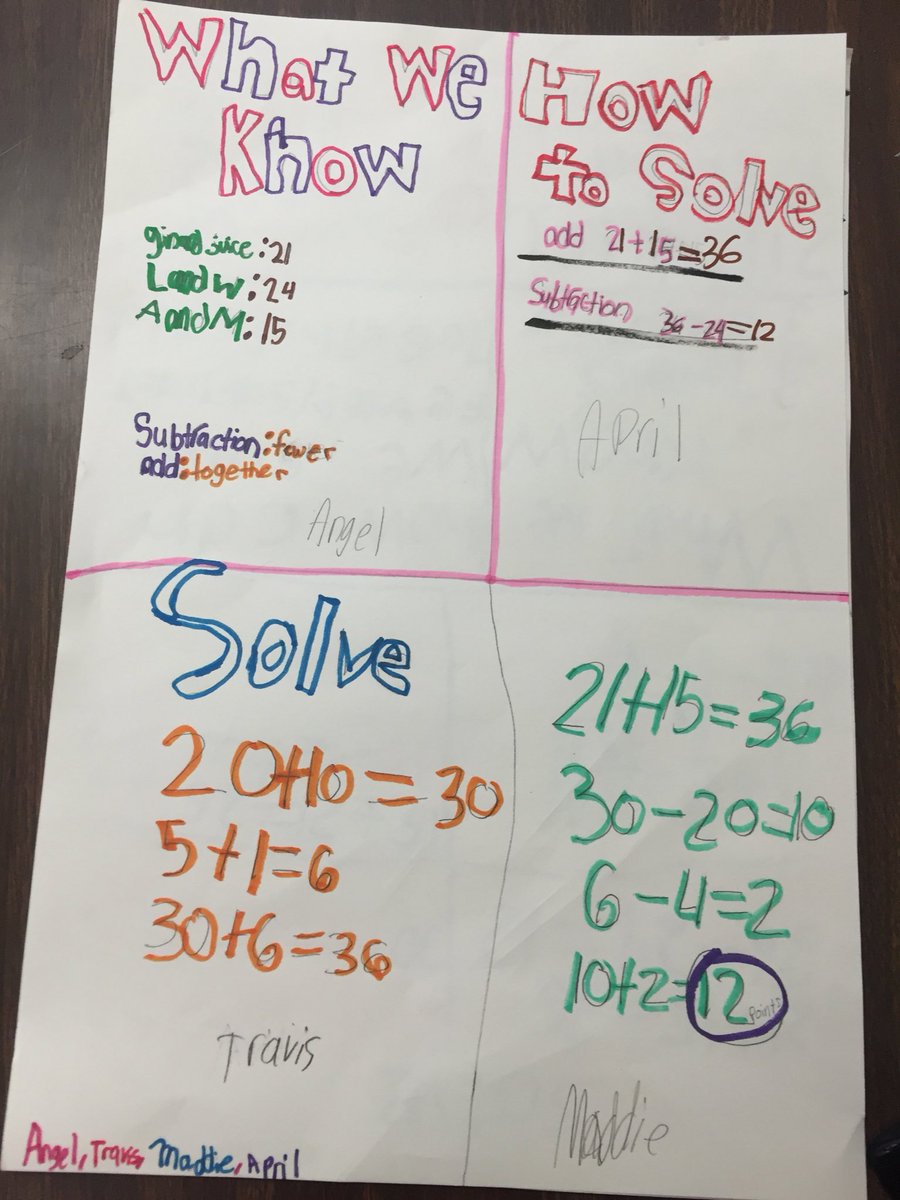 What We
Know
21
L and W: 24
A and M: 15
Subtraction: fewer
add: together
Angel
How
to Solve
add 21+15=36
Subtraction 36-24=12
April
Solve
20+10=30
5+1=6
30+6=36
Travis
21+15=36
30-20=10
6-4=2
10+2=12 points
Maddie
Angel, Travis, Maddie, April